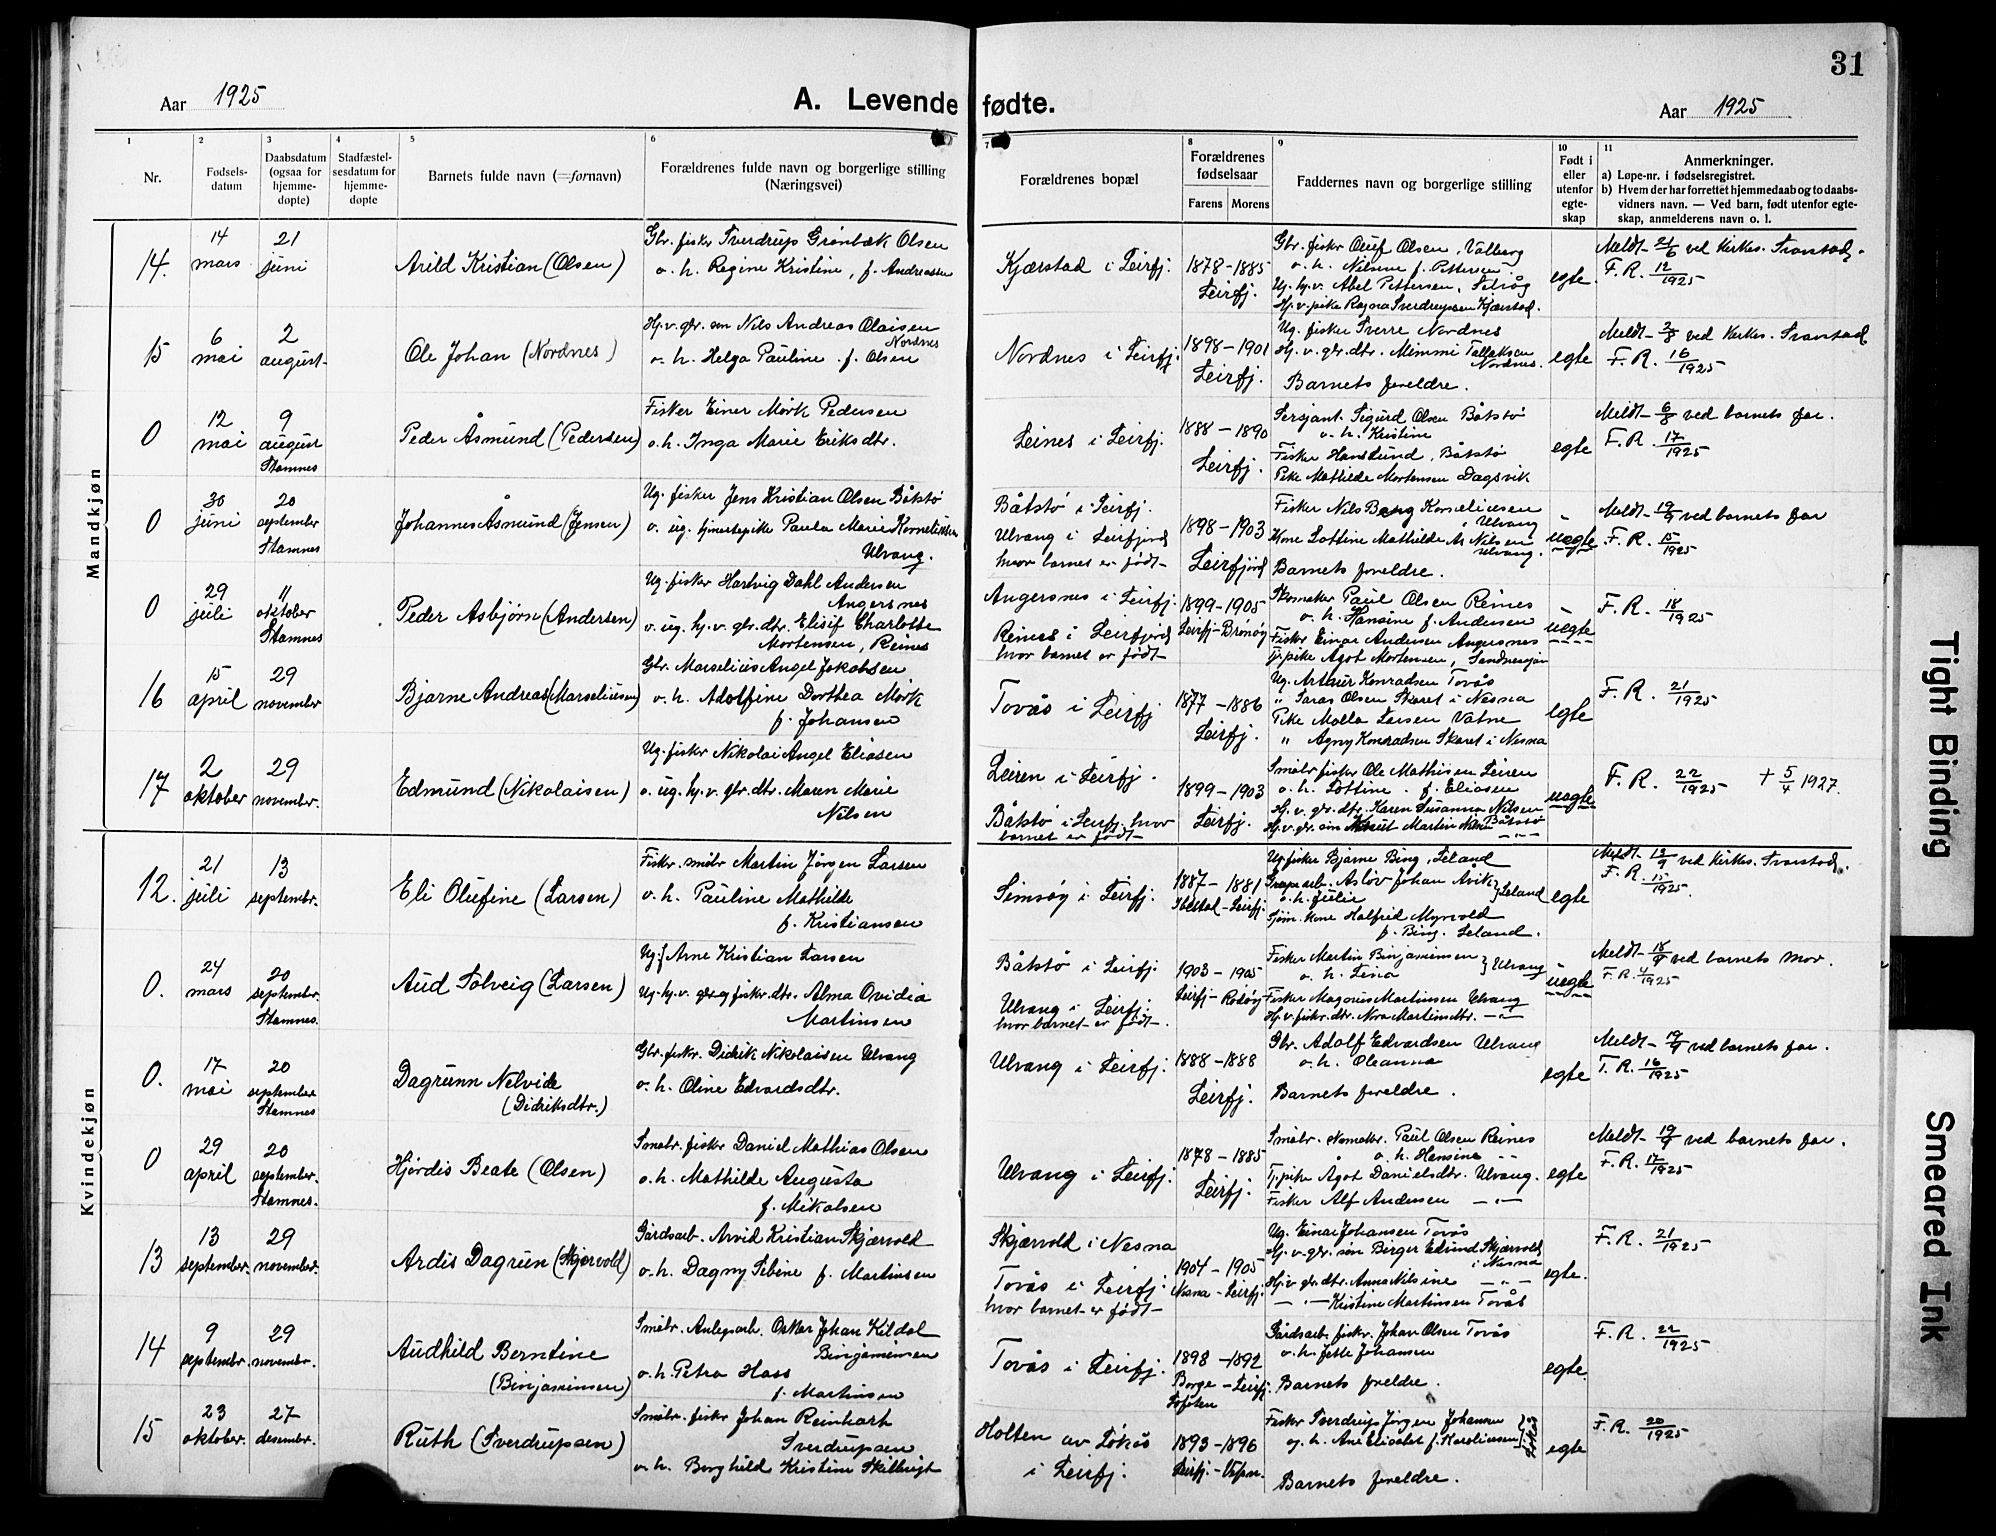 31
Aar 1925
A. Levende fødte.
Aar 1925
1
Nr.
2
Fødsels-
datum
3
Daabsdatum
(ogsaa for
hjemme-
døpte)
4
Stadfæstel-
sesdatum for
hjemme-
døpte
5
Barnets fulde navn (=fornavn)
6
Forældrenes fulde navn og borgerlige stilling
(Næringsvei)
7
Forældrenes bopæl
8
Forældrenes
fødselsaar
Farens Morens
9
Faddernes navn og borgerlige stilling
10
Født i
eller
utenfor
egte-
skap
11
Anmerkninger.
a) Løpe-nr. i fødselsregistret.
b) Hvem der har forrettet hjemmedaab og to daabs-
vidners navn. — Ved barn, født utenfor egte-
skap, anmelderens navn o. l.
Mandkjøn
14.
14
mars
21
juni
Arild Kristian (Olsen)
Gbr. fisker Sverdrup Grønbæk Olsen
o. h. Regine Kristine, f. Andreassen
Kjærstad i Leirfj.
1878-1885
Leirfj.
Gbr. fisker Oluf Olsen, Valberg
o. h. Nilsine f. Pettersen
Ug. hj. v. Abel Pettersen,
Hj. v. pike Ragna Sverdrupsen Kjærstad.
egte.
Meldt 21/6 ved kirkes. Transtad.
F. R. 12/1925
15
6
mai
2
august
Ole Johan (Nordnes)
Hj. v. gbr. søn Nils Andreas Olaisen
Nordnes
o. h. Helga Pauline f. Olsen
Nordnes i Leirfj.
1898-1901
Leirfj.
Ug. fisker Sverre Nordnes
Hj. v. gbr. dtr. Mimmi Tollaksen
Nordnes.
Barnets foreldre.
egte
Meldt 2/8 ved kirkes. Transtad
F. R. 16/1925
0
12
mai
9
august
Stamnes
Peder Åsmund (Pedersen)
Fisker Einer Mørk Pedersen
o. h. Inga Marie Eriksdtr.
Leines i Leirfj.
1888-1890
Leirfj.
Sersjant Sigurd Olsen Båtstø
o. h. Kristine
Fisker Hans Lund, Båtstø
Pike Mathilde Mortensen Dagsvik
egte
Meldt 6/8 ved barnets far.
F. R. 17/1925
0
30
juni
20
september
Stamnes
Johannes Åsmund (Jensen)
Ug. fisker Jens Kristian Olsen Båtstø
o. ug. tjenestepike Paula Marie Korneliussen
Ulvang.
Båtstø i Leirfj.
Ulvang i Leirfjord
hvor barnet er født
1898-1903
Leirfjord
Fisker Nils Berg Korneliussen
Ulvang
Kone Lottine Mathilde M. Nilsen
Ulvang.
Barnets foreldre.
uegte
Meldt 19/9 ved barnets far
F. R. 15/1925
0
29
juli
11
oktober
Stamnes
Peder Asbjørn (Andersen)
Ug. fisker Hartvig Dahl Andersen
Angersnes
o. ug. hj. v. gbr. dtr. Elisif Charlotte
Mortensen, Reines
Angersnes i Leirfj.
Reines i Leirfjord
hvor barnet er født
1899-1905
Leirfj-Brønøy
Skomaker Paul Olsen Reines
o. h. Hansine f. Andersen
Fisker Einar Andersen Angersnes
Tj. pike Ågot Mortensen, Sandnessjøen
uegte
F. R. 18/1925
16
15
april
29
november
Bjarne Andreas (Marseliussen)
Gbr. Marselius Angel Jakobsen
o. h. Adolfine Dorthea Mørk
f. Johansen
Tovås i Leirfj
1877-1886
Leirfj.
Ug. Arthur Konradsen Tovås
" Saras Olsen Skaret i Nesna
Pike Molla Larsen Vatne
" Agny Konradsen Skaret i Nesna
egte
F. R. 21/1925
17
2
oktober
29
november.
Edmund (Nikolaisen)
Ug. fisker Nikolai Angel Eliasen
o. ug. hj. v. gbr. dtr. Maren Marie
Nilsen
Leiren i Leirfj.
Båtstø i Leirfj. hvor
barnet er født
1899-1903
Leirfj.
Småbr. fisker Ole Mathisen Leiren
o. h. Lottine f. Eliasen
Hj. v. gbr. dtr. Karen Susanna Nilsen
Hj. v. gbr. søn Knut Martin Nilsen Båtstø
uegte
F. R. 22/1925 + 5/4 1927.
Kvindekjøn
12.
21
juli
13
septembr.
Eli Olufine (Larsen)
Fiskr. småbr Martin Jørgen Larsen
o. h. Pauline Mathilde
f. Kristiansen
Simsøy i Leirfj.
1887-1881
Ibestad-Leirfj.
Ug. fisker Bjarne Bing, Leland
Aslov Johan Avik } Leland
o. h. Julie
Kone Halfrid Myrvold
f. Bing. Leland.
egte
Meldt 13/9 ved kirkes. Transtad.
F. R. 15/1925
0.
24
mars
20
septembr.
Stamnes.
Aud Solveig (Larsen)
Ug. f. Arne Kristian Larsen
Ug. hj. v. gbr. og fiskr. dtr. Alma Ovidia
Martinsen
Båtstø i Leirfj.
Ulvang i Leirfj.
hvor barnet er født.
1903-1905
Leirfj-Rødøy
Fisker Martin Binjaminsen } Ulvang
o. h. Lina
Fisker Magnus Martinsen Ulvang
Hj. v. fiskr. dtr. Nora Martinsdtr. —"—
uegte
Meldt 18/9 ved barnets mor.
F. R. 4/1925
0.
17
mai
20
september
Stamnes
Dagrunn Nelvide
(Didriksdtr.)
Gbr. fiskr. Didrik Nikolaisen Ulvang
o. h. Oline Edvardsdtr.
Ulvang i Leirfj.
1888-1888
Leirfj.
Gbr. Adolf Edvardsen Ulvang
o. h. Oleanna
Barnets foreldre.
egte
Meldt 19/9 ved barnets far.
F. R. 16/1925
0
29
april
20
september.
Stamnes.
Hjørdis Beate (Olsen)
Småbr. fisker Daniel Mathias Olsen
o. h. Mathilde Augusta
f. Mikalsen
Ulvang i Leirfj.
1878-1885
Leirfj.
Småbr. skomaker. Paul Olsen Reines
o. h. Hansine —"—
Tj. pike Ågot Danielsdtr. Ulvang.
Fisker Alf Andersen —"—
egte
Meldt 19/9 ved barnets far.
F. R. 17/1925
13
13
september.
29
november.
Ardis Dagrun (Skjærvold)
Gårdsarb. Arvid Kristian Skjærvold
o. h. Dagny Sebine f. Martinsen
Skjærvold i Nesna
Tovås i Leirfj.
hvor barnet er født
1904-1905
Nesna-Leirfj.
Ug. Einar Johansen Tovås
Hj. v. gbr. søn Birger Edlund Skjærvold
i Nesna
Hj. v. gbr. dtr. Anna Nilsine —"—
—"— Kristine Martinsen Tovås
egte.
F. R. 21/1925
14
9
septembr.
29
novembr.
Audhild Berntine
(Binjaminsen)
Småbr. Anlegsarb. Oskar Johan Kildal
Binjaminsen
o. h. Petra Hass
f. Martinsen
Tovås i Leirfj.
1898-1892
Borge-Leirfj.
Lofoten
Gårdsarb. fiskr. Johan Olsen Tovås
o. h. Jette Johansen
Barnets foreldre.
egte.
F. R. 22/1925
15
23
oktober.
27
desembr.
Ruth (Sverdrupsen)
Småbr. fiskr Johan Reinhart
Sverdrupsen
o. h. Borghild Kristine Skillingt
Holten av Løkås
i Leirfj.
1893-1896
Leirfj.-Vefsn.
Fisker Sverdrup Jørgen Johansen
og h. Ane Elisabet f. Karoliussen } Løkås
Barnets foreldre.
egte
F. R. 20/1925
Tight Binding
Smeared Ink